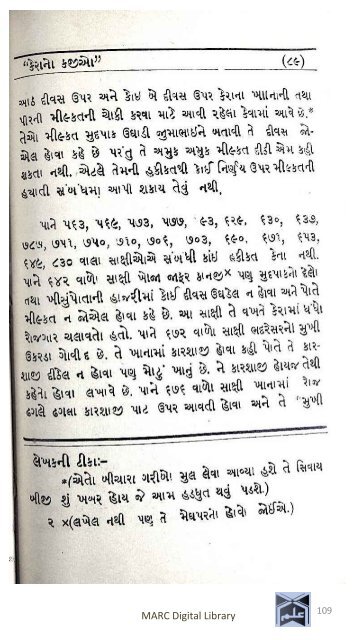 “કેરાનો કજીઓ” (૮૯)
આઠ દીવસ ઉપર અને કોઇ બે દીવસ ઉપર કેરાના ખાનાની તથા
પીરની મીલ્કતની ચોકી કરવા માટે આવી રહેલા કેવામાં આવે છે.*
તેઓ મીલ્કત સુદપાક ઉઘાડી જીમાભાઈને બતાવી તે દીવસ જો-
એલ હોવા કહે છે પરંતુ તે અમુક અમુક મીલ્કત દીઠી એમ કહી
શકતા નથી. એટલે તેમની હકીકતથી કાંઈ નિર્ણય ઉપર મીલ્કતની
હયાતી સંબંધમાં આપી શકાય તેવું નથી.
પાને ૫૬૩, ૫૬૯, ૫૭૩, ૫૭૭, ૬૨૯, ૬૩૦, ૬૩૭,
૭૫૧, ૭૫૦, ૭૧૦, ૭૦૬, ૭૦૩, ૬૯૦, ૬૭૧, ૬૫૩,
૬૪૯, ૮૩૦ વાલા સાક્ષીઓએ સંબંધી કાંઇ હકીકત કેતા નથી.
પાને ૬૪૨ વાળો સાક્ષી ખોજા જાફર કાનજી× પણ સુદપાકનો દેલો
તથા ખીસું પોતાની હાજરીમાં કોઈ દીવસ ઉઘડેલ ન હોવા અને પોતે
મીલ્કત ન જોએલ હોવા કહે છે. આ સાક્ષી તે વખતે કેરામાં ધંધો
રોજગાર ચલાવતો હતો. પાને ૬૭૨ વાળો સાક્ષી ભદરેસરનો મુખી
ઉકરડા ગોવીંદ છે. તે ખાનામાં કારશાજી હોવા કહી પોતે તે કાર-
શાજી દીઠેલ ન હોવા પણ મોટું ખાનું છે. ને કારશાજી હોયજ તેથી
કહેતો હોવા લખાવે છે. પાને ૬૭૬ વાળો સાક્ષી ખાનામાં રોજ
ઢગલે ઢગલા કારશાજી પાટ ઉપર આવતી હોવા અને તે “મુખી
લેખકની ટીકા:–
*(એતો બીચારા ગરીબો મુલ લેવા આવ્યા હશે તે સિવાય
બીજી શું ખબર હોય જે આમ હડધુત થવું પડશે.)
૨ ×(લખેલ નથી પણ તે મેઘપરનો હોવો જોઈએ.)
MARC Digital Library
109